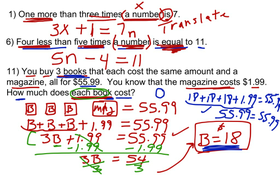 x
1) One more than three times a number is 7. Translate
3X + 1 = 7 n
6) Four less than five times a number is equal to 11.
5n - 4 = 11
11) You buy 3 books that each cost the same amount and a
magazine, all for $55.99. You know that the magazine costs $1.99.
How much does each book cost?
B B B mag = 55.99
18+18+18+1.99=55.99
55.99 = 55.99
B+B+B+1.99 = 55.99
3B + 1.99 = 55.99
-1.99 -1.99
3B = 54
3 3
B=18